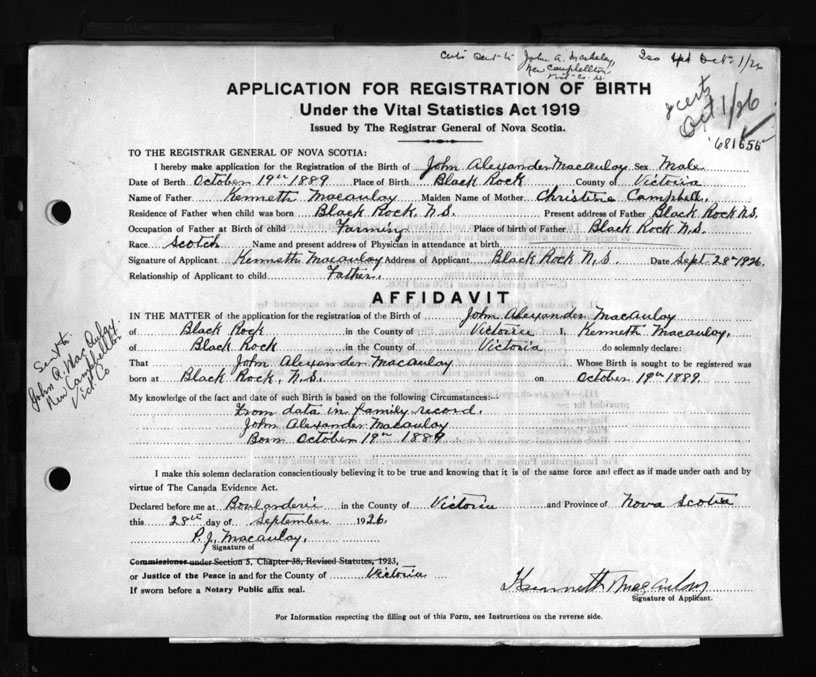 Certs Sent to John A. Macaulay,
New Campbellton
Vict. Co.
Oct. 1/26
2 certs
Oct 1/26
681655
APPLICATION FOR REGISTRATION OF BIRTH
Under the Vital Statistics Act 1919
Issued by The Registrar General of Nova Scotia.
TO THE REGISTRAR GENERAL OF NOVA SCOTIA:
I hereby make application for the Registration of the Birth of John Alexander Macaulay Sex Male
Date of Birth October 19th 1889 Place of Birth Black Rock County of Victoria
Name of Father Kenneth Macaulay Maiden Name of Mother Christine Campbell.
Residence of Father when child was born Black Rock, N.S. Present address of Father Black Rock N.S.
Occupation of Father at Birth of child Farming Place of birth of Father Black Rock N.S.
Race Scotch Name and present address of Physician in attendance at birth
Signature of Applicant Kenneth Macaulay Address of Applicant Black Rock N.S. Date Sept. 28th 1926.
Relationship of Applicant to child Father.
AFFIDAVIT
IN THE MATTER of the application for the registration of the Birth of John Alexander Macaulay
of Black Rock in the County of Victoria I, Kenneth Macaulay,
of Black Rock in the County of Victoria do solemnly declare:
That John Alexander Macaulay Whose Birth is sought to be registered was
born at Black Rock, N.S. on October 19th 1889.
My knowledge of the fact and date of such Birth is based on the following Circumstances:—
From data in family record.
John Alexander Macaulay
Born October 19th 1889
Sent to
John A. MacAulay.
New Campbellton
Vict. Co
I make this solemn declaration conscientiously believing it to be true and knowing that it is of the same force and effect as if made under oath and by
virtue of The Canada Evidence Act.
Declared before me at Boulanderi in the County of Victoria and Province of Nova Scotia
this 28th day of September 1926.
P.J. Macaulay.
Signature of
Commissioner under Section 5, Chapter 38, Revised Statutes, 1923,
or Justice of the Peace in and for the County of Victoria
If sworn before a Notary Public affix seal.
Kenneth Macaulay
Signature of Applicant.
For Information respecting the filling out of this Form, see Instructions on the reverse side.